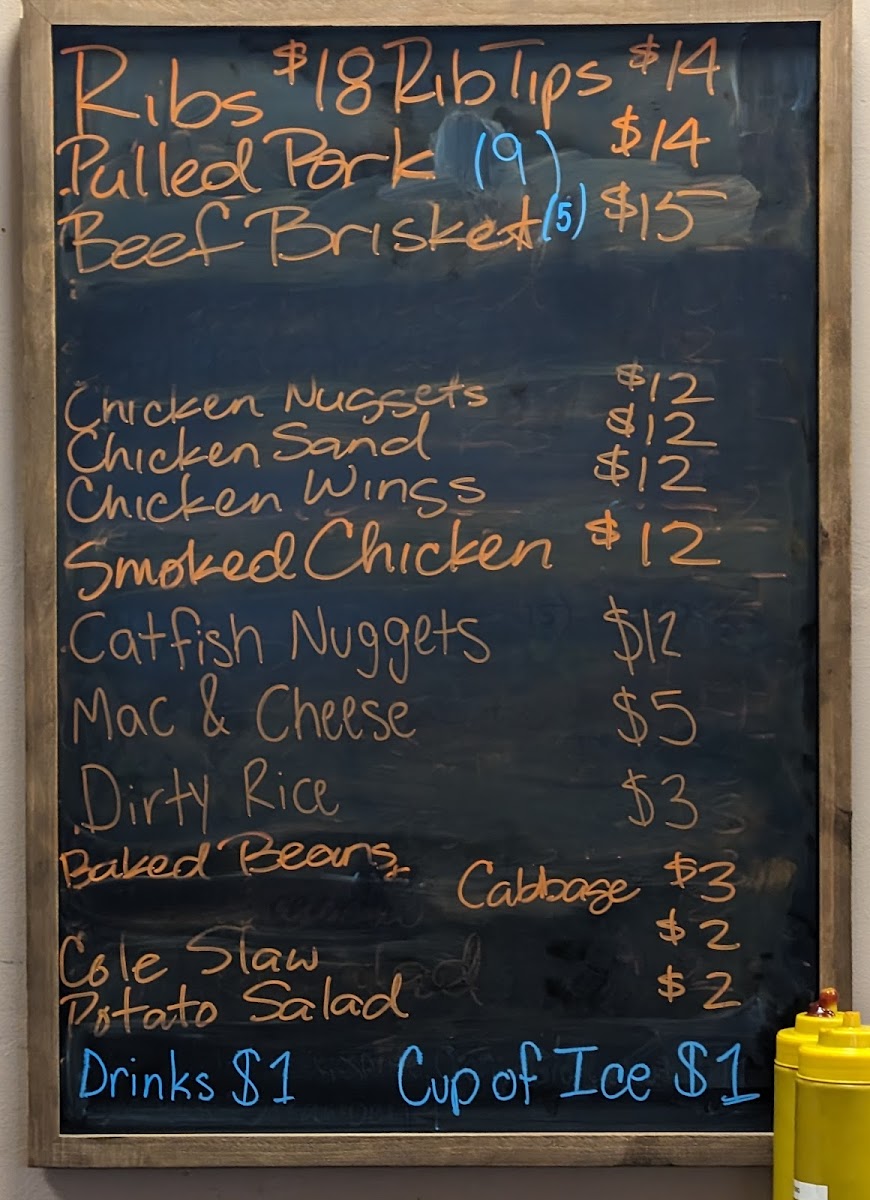 Ribs $18 Rib Tips $14
Pulled Pork (9) $14
Beef Brisket (5) $15
Chicken Nuggets $12
Chicken Sand $12
Chicken Wings $12
Smoked Chicken $12
Catfish Nuggets $12
Mac & Cheese $5
Dirty Rice $3
Baked Beans Cabbage $3
Cole Slaw $2
Potato Salad $2
Drinks $1 Cup of Ice $1